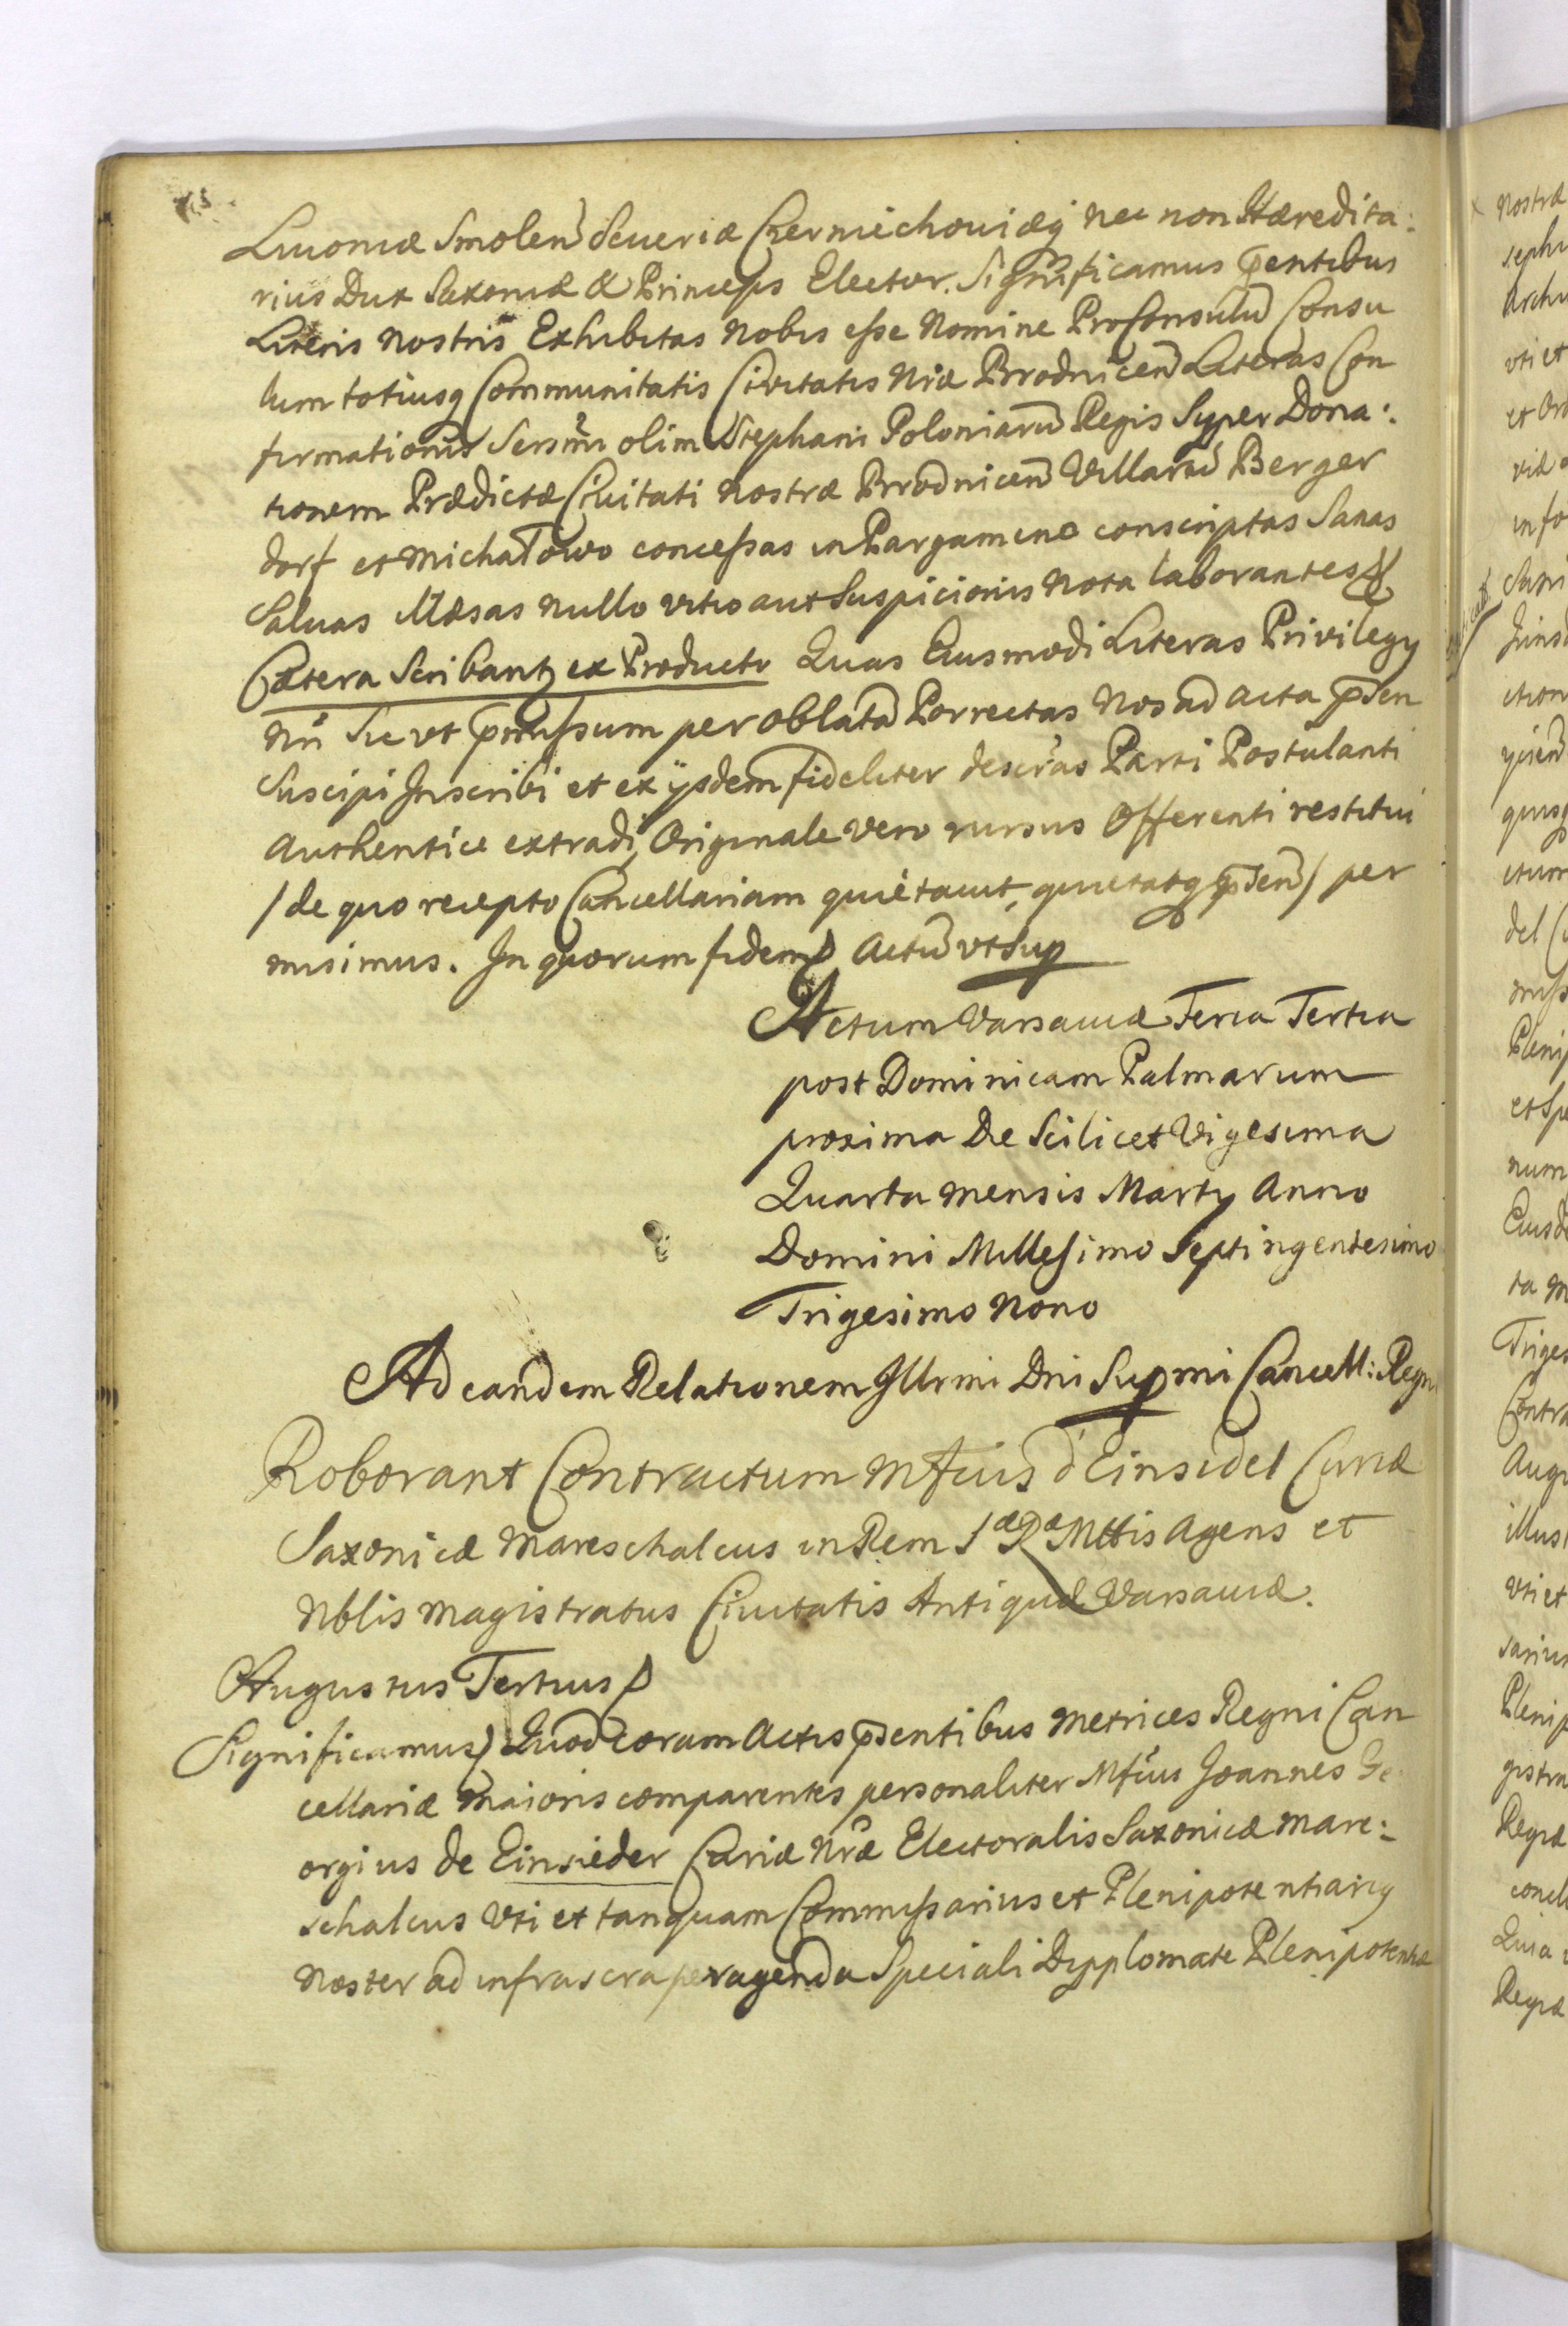 Livoniæ Smolen Severiæ Czerniechoviæq nec non Hæredita:
rius Dux Saxoniæ & Princeps Elector. Significamus p̄sentibus
Literis Nostris Exhibitas Nobis esse Nomine ProConsulu͂ Consu
lum totiusq Communitatis Civitatis Nr̃æ Brodnicen͂ Literas Con
firmationis Serśmi olim Stephani Poloniaru͂ Regis Super Dona:
tionem Prædictæ Civitati Nostræ Brodnicen͂ Villaru͂ Berger
dorf et Michałowo concessas in Pargameno conscriptas Sanas
Salvas illæsas nullo vitio aut Suspicionis nota laborantes
Cætera Scribant ex Producto Quas Eiusmodi Literas Privilegy
Nr̃i Sic ut p̄missum per oblata͂ Porrectas Nos ad acta p̄sen
Suscipi Inscribi et ex ijsdem fideliter descr̃as Parti Postulanti
Authentice extradi, Originale vero rursus Offerenti restitui
/de quo recepto Cancellariam quietavit, quietatq p̄sen͂/ per
misimus. In quorum fidem Actu͂ ut sup
Actum Varsaviæ Feria Tertia
post Dominicam Palmarum
proxima Die Scilicet Vigesima
Quarta mensis Marty Anno
Domini Millesimo Septingentesimo
Trigesimo Nono
Ad eandem Relationem Illr̃mi Dn̄i Supmi Cancell: Regni
Roborant Contractum Mfcus d'Einsidel Curiæ
Saxonicæ Mareschalcus in Rem Sæ Ræ Mttis Agens et
Nblis Magistratus Civitatis Antiquæ Varsaviæ.
Augustus Tertius
Significamus Quod coram Actis p̄sentibus Metrices Regni Can
cellariæ Maioris comparentes personaliter Mfcus Joannes Ge
orgius de Einsieder Curiæ Nr̃æ Electoralis Saxonicæ Mare:
schalcus Uti et tanquam Commissarius et Plenipotentiariq
Noster ad infrascra peragenda Speciali Dypplomate Plenipotentiæ